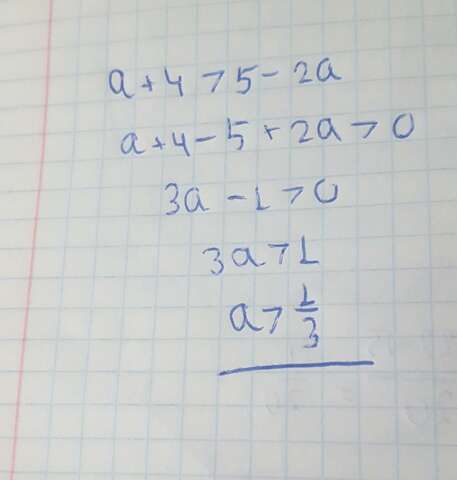 a + 4 > 5 - 2a
a + 4 - 5 + 2a > 0
3a - 1 > 0
3a > 1
a > 1/3